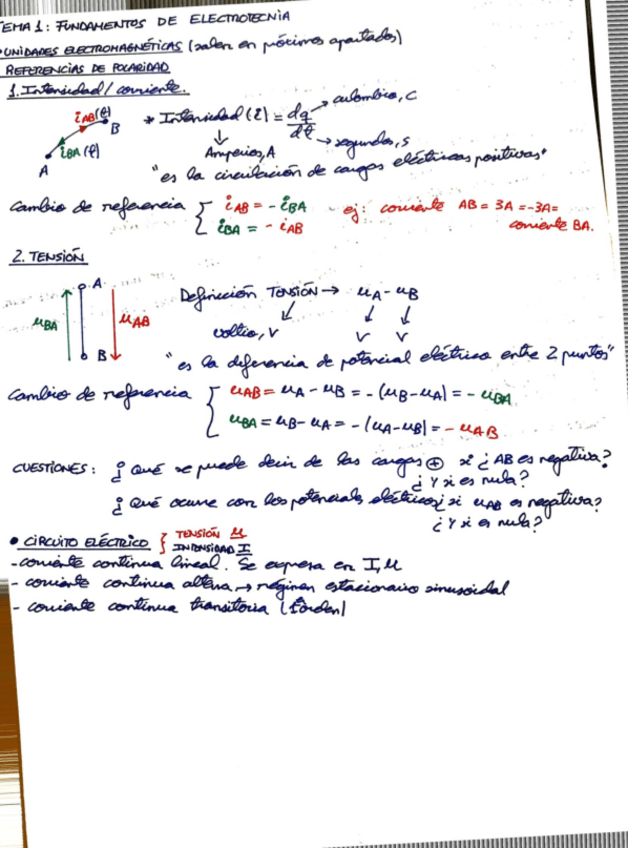 TEMA 1: FUNDAMENTOS DE ELECTROTECNIA
• UNIDADES ELECTROMAGNÉTICAS (salen en próximos apartados)
REFERENCIAS DE POLARIDAD
1. Intensidad/corriente.
iAB(t)
B
iBA(t)
A
* Intensidad (i) = dq/dt
→ culombios, C
→ segundos, s
Amperios, A
"es la circulación de cargas eléctricas positivas"
Cambio de referencia { iAB = - iBA
iBA = - iAB
ej: corriente AB = 3A = -3A =
corriente BA.
2. TENSIÓN
A
uBA
uAB
B
Definición TENSIÓN → uA - uB
voltio, V
V V
"es la diferencia de potencial eléctrico entre 2 puntos"
Cambio de referencia { uAB = uA - uB = -(uB - uA) = - uBA
uBA = uB - uA = -(uA - uB) = - uAB
CUESTIONES: ¿Qué se puede decir de las cargas ⊕ si iAB es negativa?
¿Y si es nula?
¿Qué ocurre con los potenciales eléctricos si uAB es negativa?
¿Y si es nula?
• CIRCUITO ELÉCTRICO { TENSIÓN u
INTENSIDAD I
- corriente continua lineal. Se expresa en I, u
- corriente continua alterna → régimen estacionario sinusoidal
- corriente continua transitoria (1ºorden)